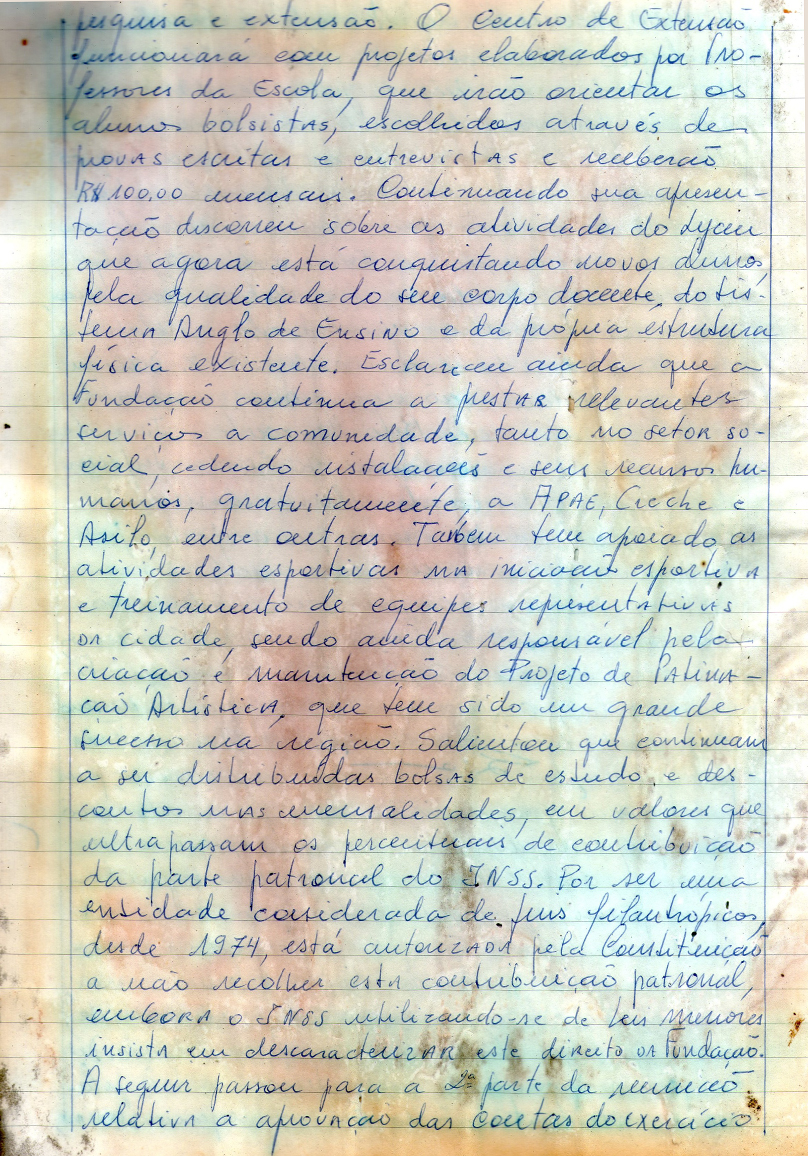 pesquisa e extensão. O Centro de Extensão
funcionará com projetos elaborados por Pro-
fessores da Escola, que irão orientar os
alunos bolsistas, escolhidos através de
provas escritas e entrevistas e receberão
R$100,00 mensais. Continuando sua apresen-
tação discorreu sobre as atividades do Lyceu
que agora está conquistando novos alunos
pela qualidade do seu corpo docente, do Sis-
tema Anglo de Ensino e da própria estrutura
física existente. Esclareceu ainda que a
Fundação continua a prestar relevantes
serviços a comunidade, tanto no setor so-
cial, cedendo instalações e seus recursos hu-
manos, gratuitamente, a APAE, Creche e
Asilo, entre outras. Também tem apoiado as
atividades esportivas na iniciação esportiva
e treinamento de equipes representativas
da cidade, sendo ainda responsável pela
criação e manutenção do Projeto de Patina-
ção Artística, que tem sido um grande
sucesso na região. Salientou que continuam
a ser distribuidas bolsas de estudo e des-
contos nas mensalidades, em valores que
ultrapassam os percentuais de contribuição
da parte patronal do INSS. Por ser uma
entidade considerada de fins filantrópicos,
desde 1974, está autorizada pela Constituição
a não recolher esta contribuição patronal,
embora o INSS utilizando-se de leis menores
insista em descaracterizar este direito da Fundação.
A seguir passou para a 2ª parte da reunião
relativa a aprovação das contas do exercício